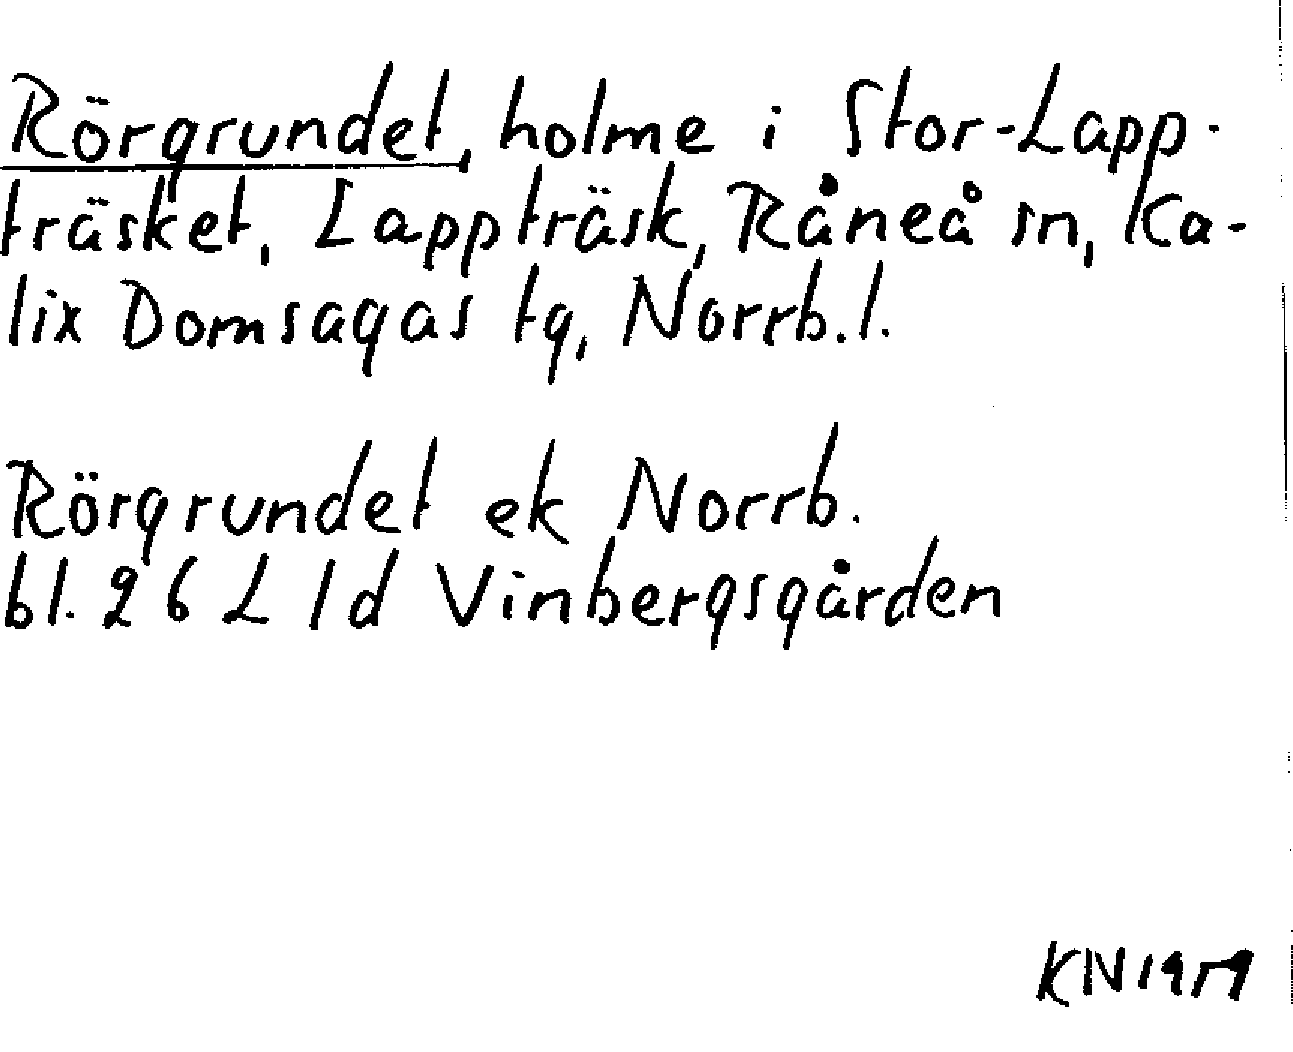 Rörgrundet, holme i Stor-Lapp-
träsket, Lappträsk, Råneå sn, Ka-
lix Domsagas tg, Norrb.l.
Rörgrundet ek Norrb.
bl. 26 L 1d Vinbergsgården
KN